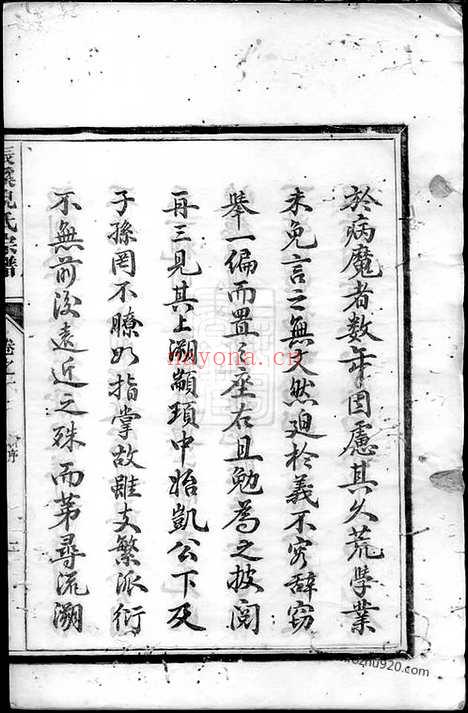 於病魔者数年因慮其久荒學業
未免言之無文然迫於義不容辞窃
舉一偏而置之座右且勉為之披閲
再三見其上溯顓頊中始凱公下及
子孫罔不瞭如指掌故雖支繁派衍
不無前後遠近之殊而苐尋流溯
氏宗譜
卷之
nayona.cn